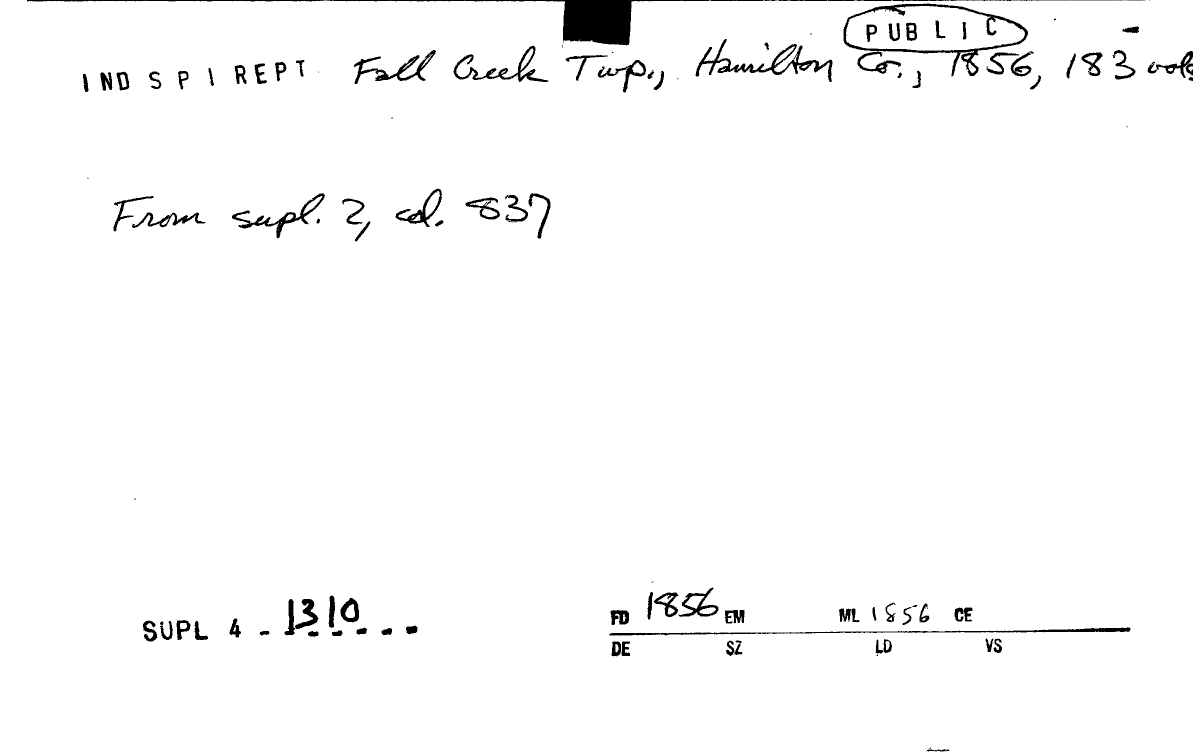 PUBLIC
INDSPIREPT Fall Creek Twp., Hamilton Co., 1856, 183 vols
From supl. 2, col. 837
SUPL 4 - 1310
FD 1856 EM ML 1856 CE
DE SZ LD VS